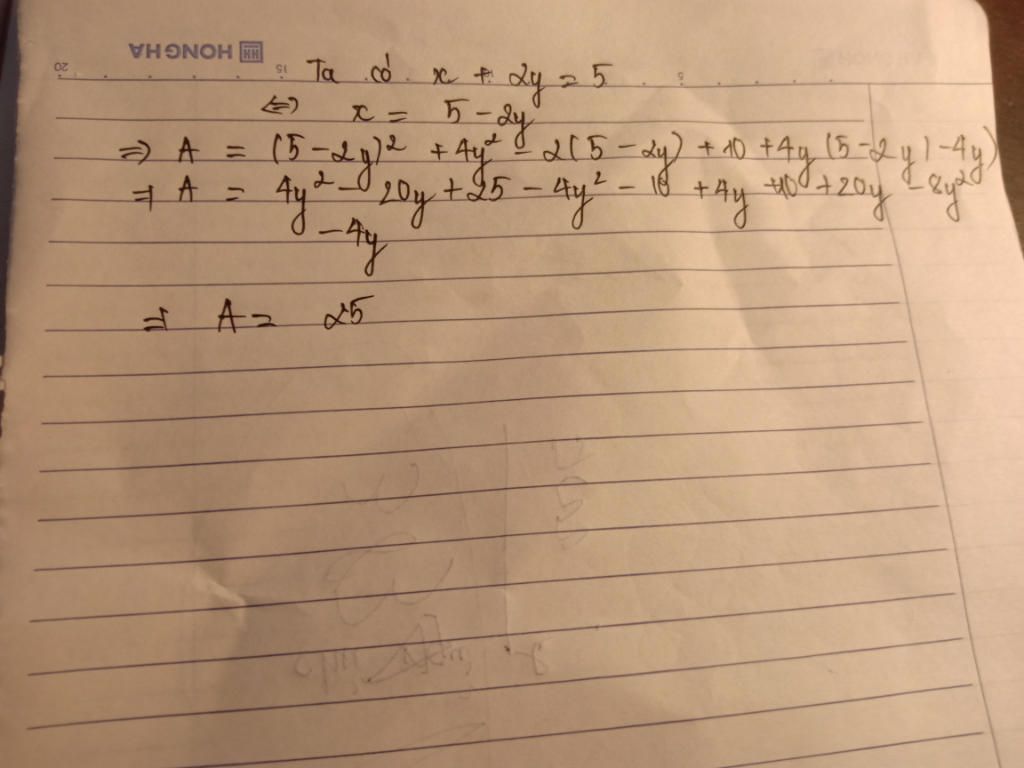 HONGHA
20 15 5
Ta có x + 2y = 5
<=> x = 5 - 2y
=> A = (5-2y)² + 4y² - 2(5-2y) + 10 + 4y (5-2y) - 4y
=> A = 4y² - 20y + 25 - 4y² - 10 + 4y + 10 + 20y - 8y²
- 4y
=> A = 25